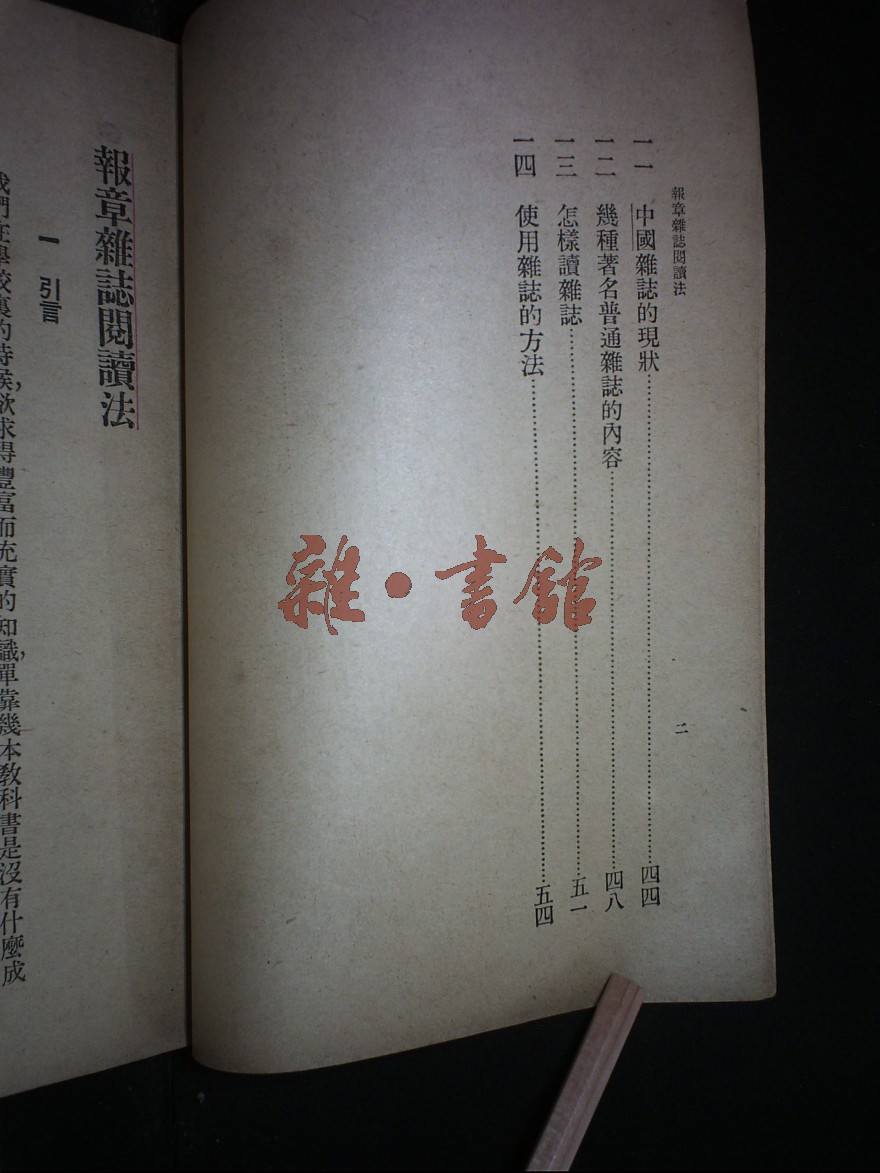 報章雜誌閱讀法
一一 中國雜誌的現狀……四四
一二 幾種著名普通雜誌的內容……四八
一三 怎樣讀雜誌……五一
一四 使用雜誌的方法……五四
二
報章雜誌閱讀法
一 引言
我們在學校裏的時候，欲求得豐富而充實的知識，單靠幾本教科書是沒有什麼成
雜·書館